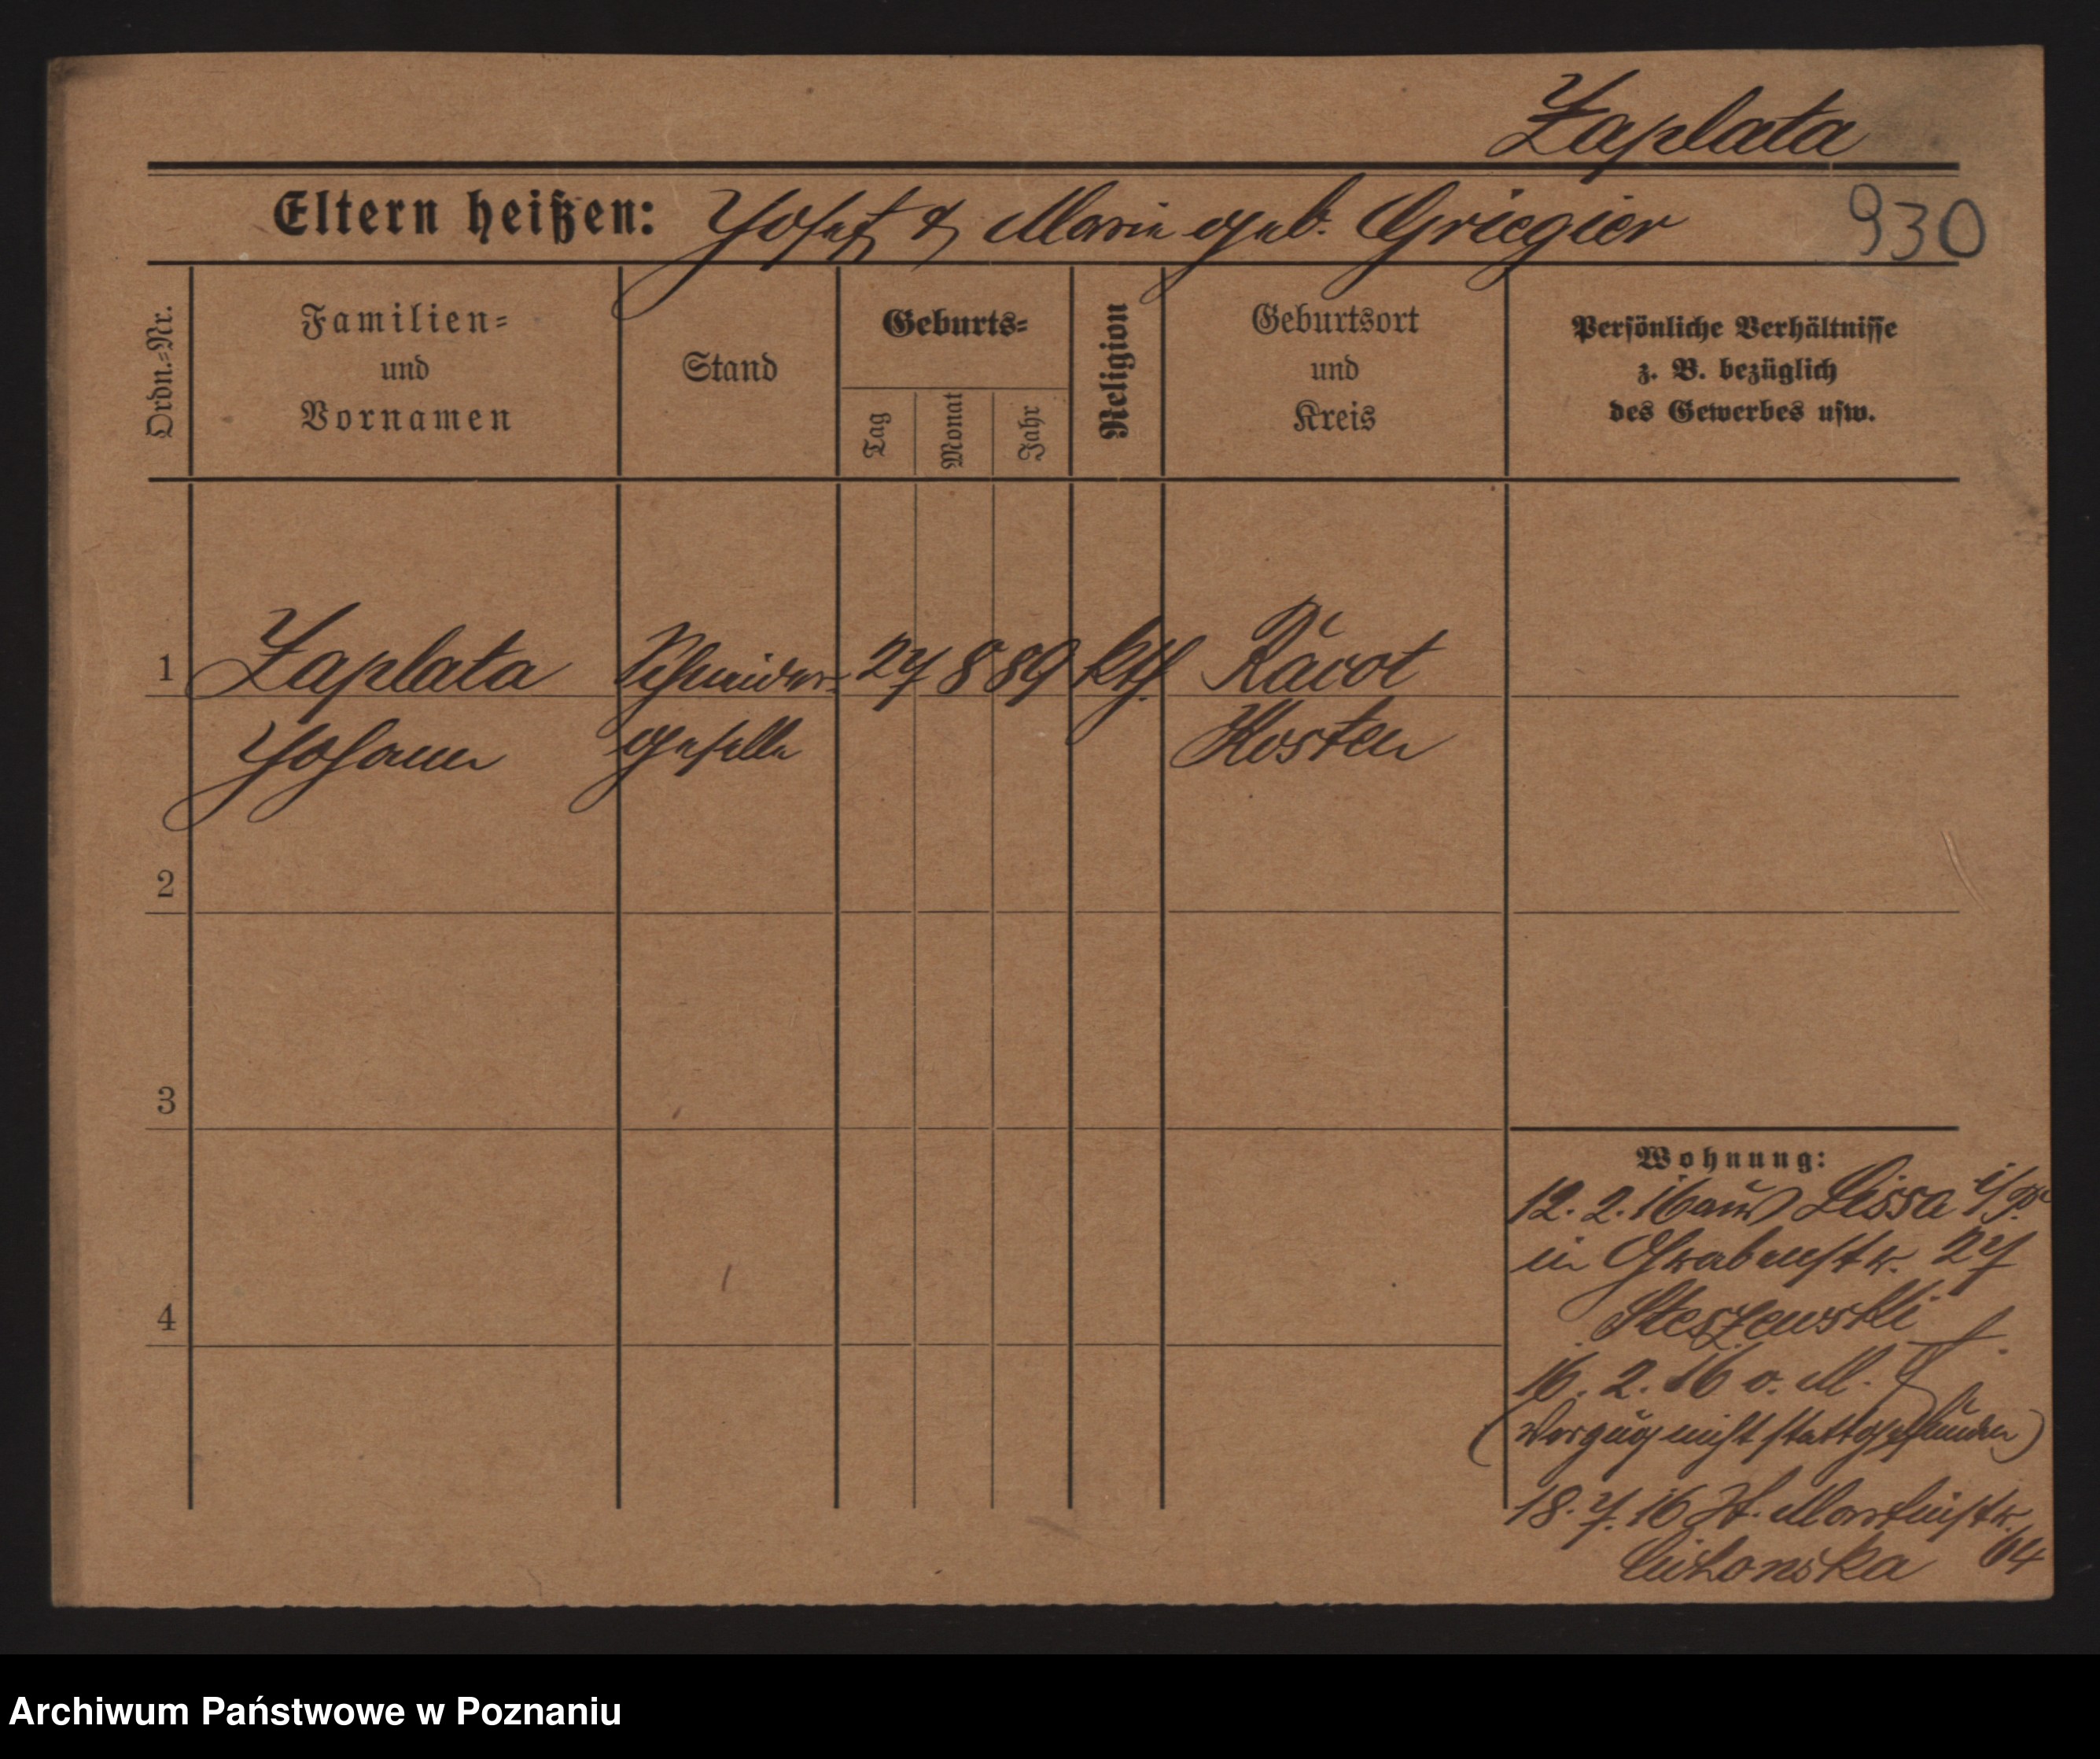 Zaplata
Eltern heißen: Josef & Marie geb. Griegier
930
Ordn.-Nr.
Familien-
und
Vornamen
Stand
Geburts-
Tag
Monat
Jahr
Religion
Geburtsort
und
Kreis
Persönliche Verhältnisse
z. B. bezüglich
des Gewerbes usw.
1 Zaplata Schneider- 27 8 89 kth. Racot
Johann geselle Kosten
2
3
4
Wohnung:
12. 2. 16 aus Lissa i/P.
in Grabenstr. 27
Steszewski
16. 2. 16 o. M.
(Vorzug nicht stattgefunden)
18. 7. 16 St. Martinstr.
64
Archiwum Państwowe w Poznaniu